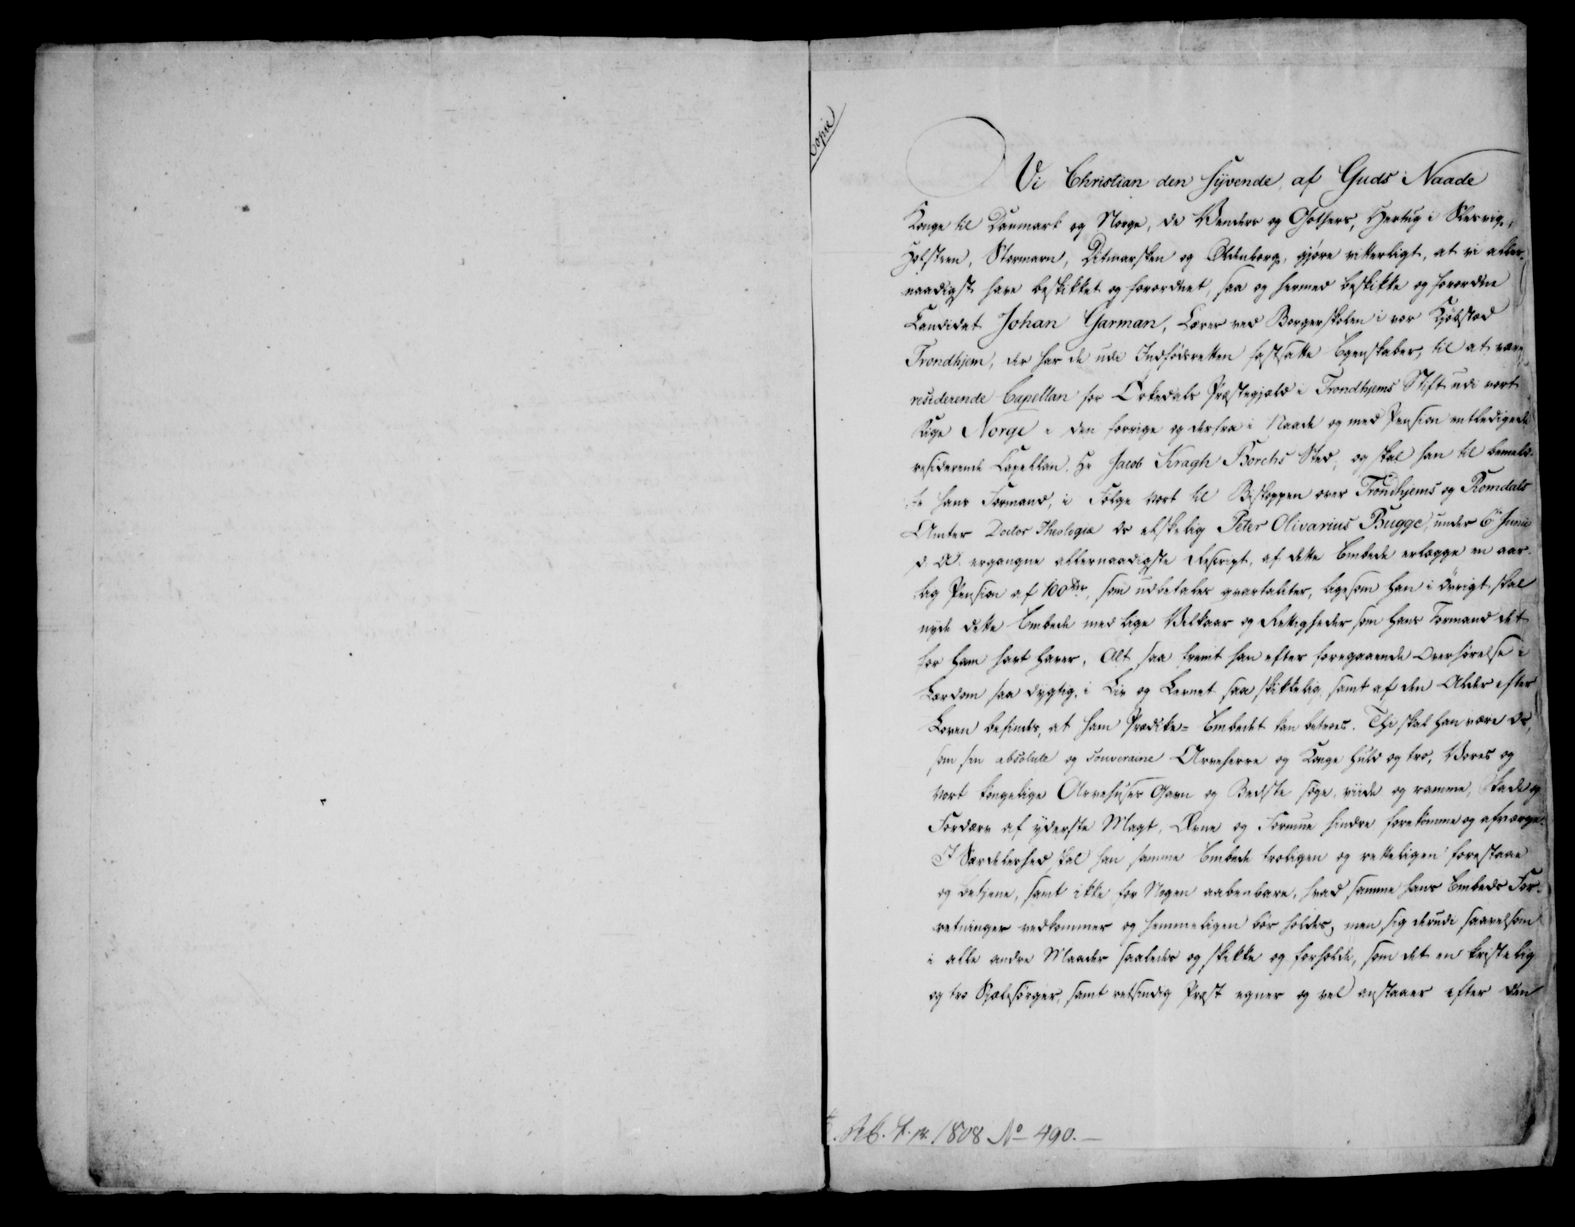 Copie
Vi Christian den Syvende, af Guds Naade
Konge til Danmark og Norge, de Venders og Gothers, Hertug i Slesvig,
Holsteen, Stormarn, Ditmarsken og Oldenborg, gjøre vitterligt, at vi aller-
naadigst have beskikket og forordnet, saa og hermed beskikke og forordne
Candidat Johan Garman, Lærer ved Borgerskolen i vor Kjøbstad
Trondhjem, der har de udi Indfødsretten fastsatte Egenskaber, til at være
residerende Capellan for Örkedals Præstegjæld i Trondhjems Stift udi vort
Rige Norge i den forrige og derfra i Naade og med Pension entledigede
residerende Capellan, Hr Jacob Kragh Borchs Sted, og skal han til bemeld-
te hans Formand, i Følge vort til Biskoppen over Trondhjems og Romdals
Amter Doctor Theologiæ Os elskelig Peter Olivarius Bugge, under 6te Junii
d. A. ergangne allernaadigste Rescript, af dette Embede erlægge en aar-
lig Pension af 100 Rdr, som udbetales qvartaliter, ligesom han i övrigt skal
nyde dette Embede med lige Vilkaar og Rettigheder som hans Formand det
før ham havt haver, Alt saa fremt han efter foregaaende Overhørelse i
Lærdom saa dygtig, i Liv og Levnet saa skikkelig, samt af den Alder efter
Loven befindes, at ham Prædike- Embedet kan betroes. Thi skal han være Os,
som sin absolute og souveraine Arveherre og Konge huld og tro, Vores og
vort kongelige Arvehuses Gavn og Bedste söge, viide og ramme, Skade og
Fordærv af yderste Magt, Evne og Formue hindre forekomme og afværge.
I Særdeleshed skal han samme Embede troligen og retteligen forestaae
og betjene, samt ikke for Nogen aabenbare, hvad samme hans Embeds For-
retninger vedkommer og hemmeligen bör holdes, men sig derudi saavelsom
i alle andre Maader saaledes og skikke og forholde, som det en kristelig
og tro Sjælesörger, samt retsindig Præst egner og vel anstaaer efter den
1808 No 490.